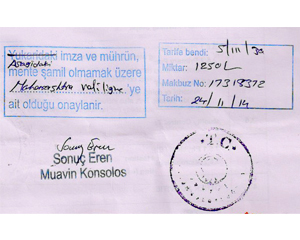 Yukarıdaki imza ve mührün,
Aşağıdaki
mente şamil olmamak üzere
Maharashtra valiliğine 'ye
ait olduğu onaylanır.
Tarife bendi: 5/III/
Miktar: 1250L
Makbuz No: 17318372
Tarih: 24/11/14
Sonuç Eren
Sonuç Eren
Muavin Konsolos
T.C.